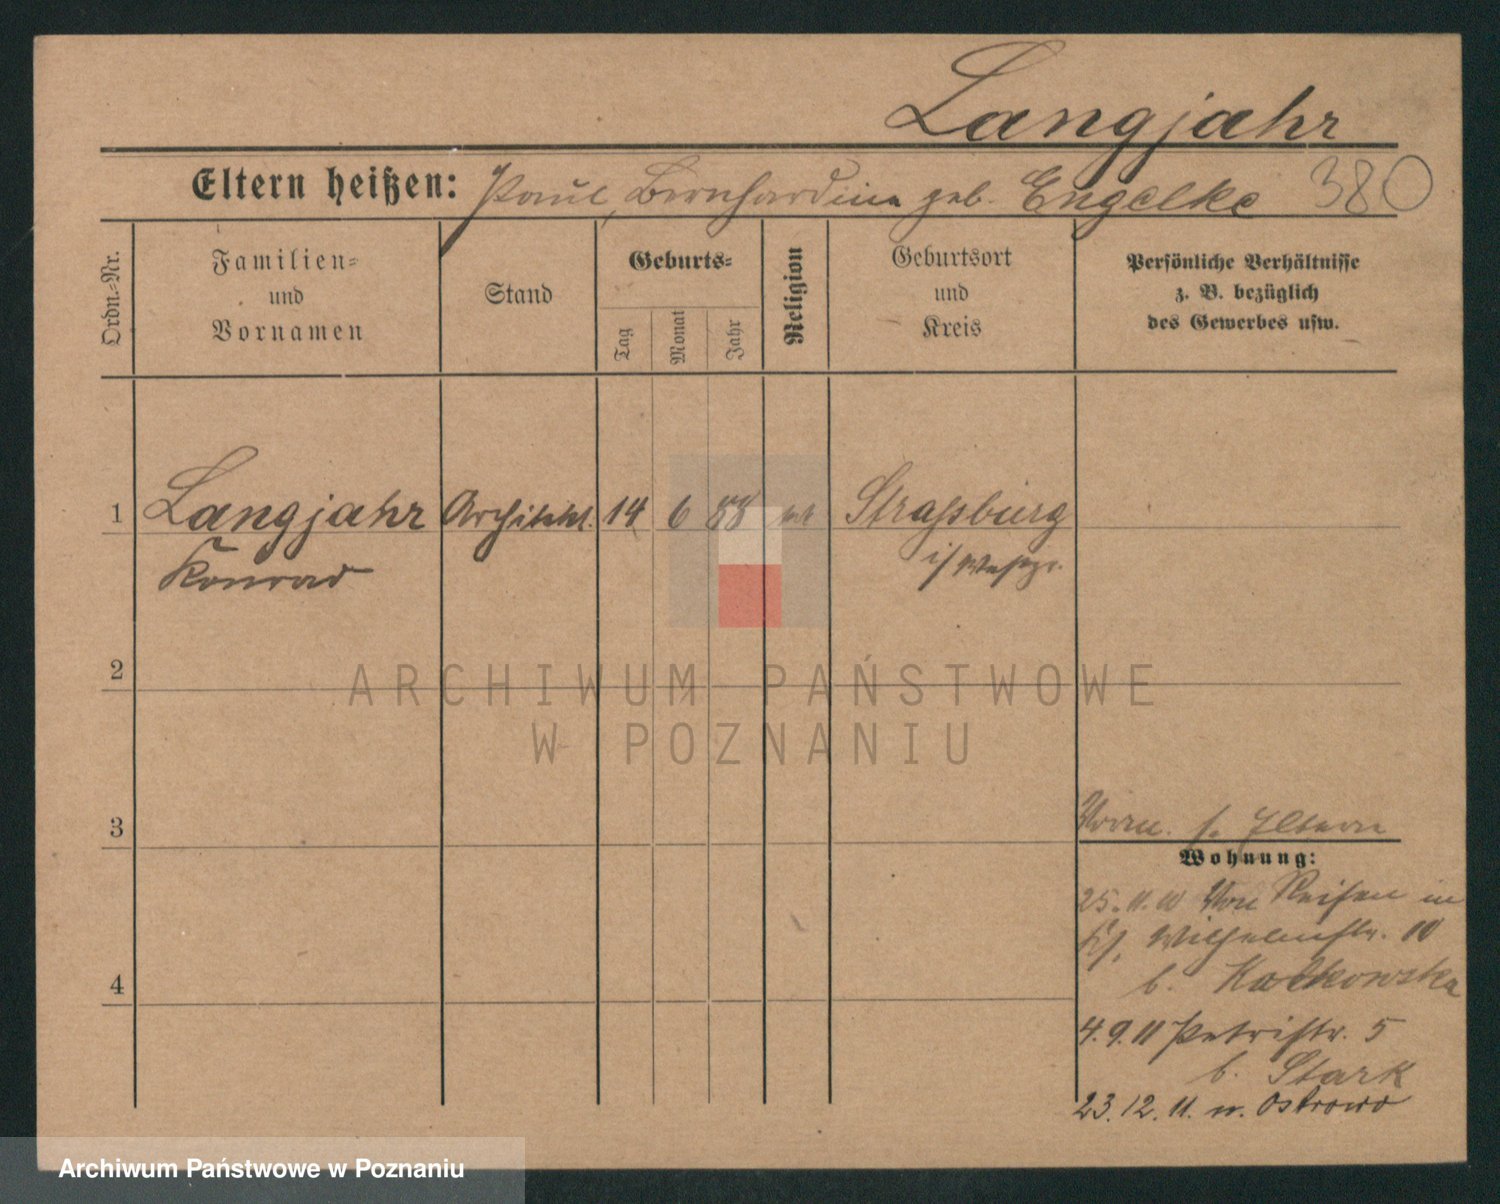 Langjahr
Eltern heißen: Paul, Bernhardine geb. Engelke 380
Ordn.=Nr.
Familien=
und
Vornamen
Stand
Geburts=
Tag
Monat
Jahr
Religion
Geburtsort
und
Kreis
Persönliche Verhältnisse
z. B. bezüglich
des Gewerbes usw.
1 Langjahr Architekt. 14 6 88 Straßburg
Konrad i/ Westpr.
2
ARCHIWUM PAŃSTWOWE
W POZNANIU
3
s. Eltern
Wohnung:
25.11.10 Von Reisen in
Wilhelmstr. 10
4
b. Katkowska
4.9.11 Petristr. 5
b. Stark
23.12.11. n. Ostrowo
Archiwum Państwowe w Poznaniu